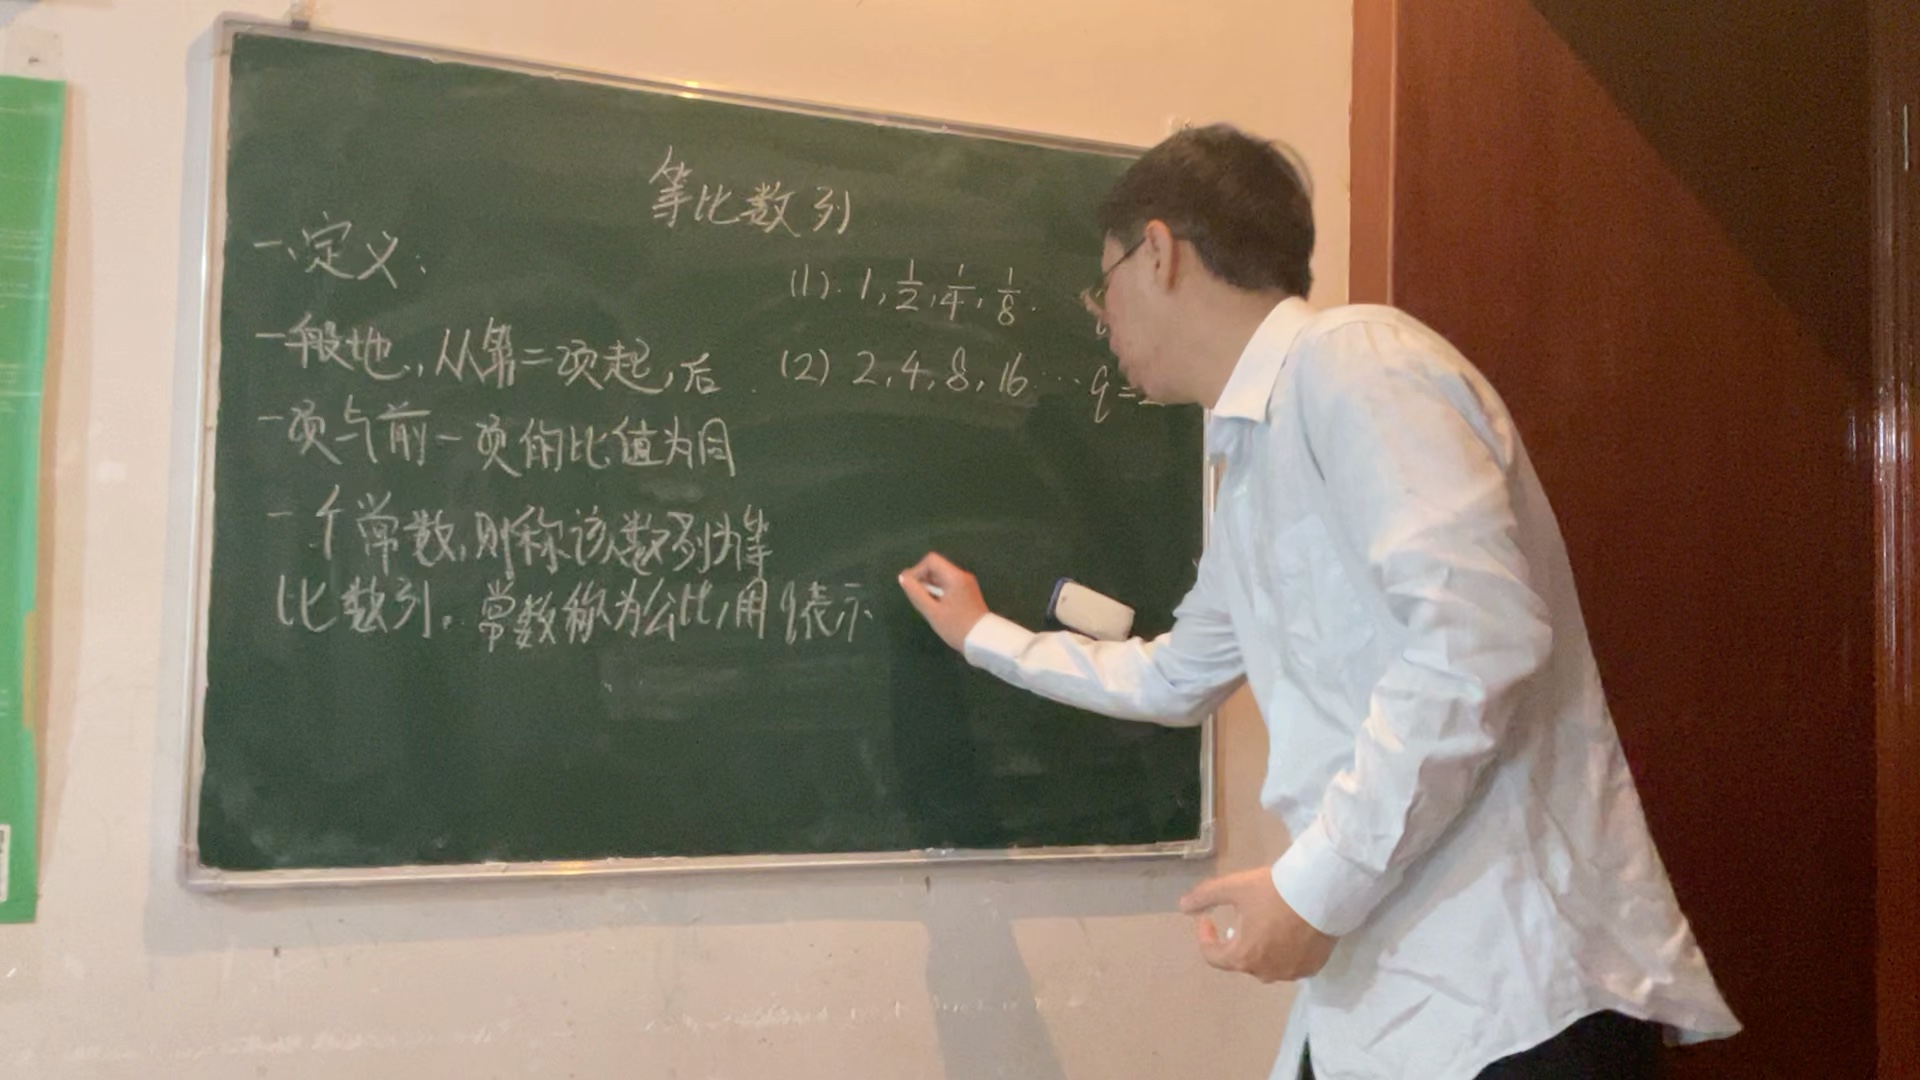 等比数列
一、定义：
一般地，从第二项起，后
一项与前一项的比值为同
一个常数，则称该数列为等
比数列。常数称为公比，用q表示
(1). 1, 1/2, 1/4, 1/8.
(2) 2, 4, 8, 16 ··· q=2